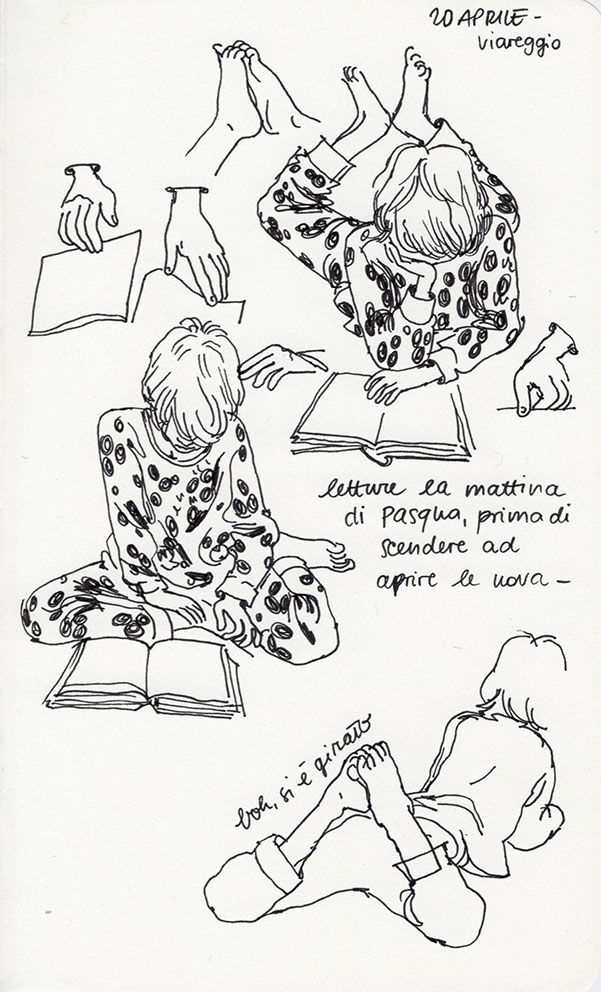 20 APRILE -
viareggio
letture la mattina
di Pasqua, prima di
scendere ad
aprire le uova -
boh, si è girato